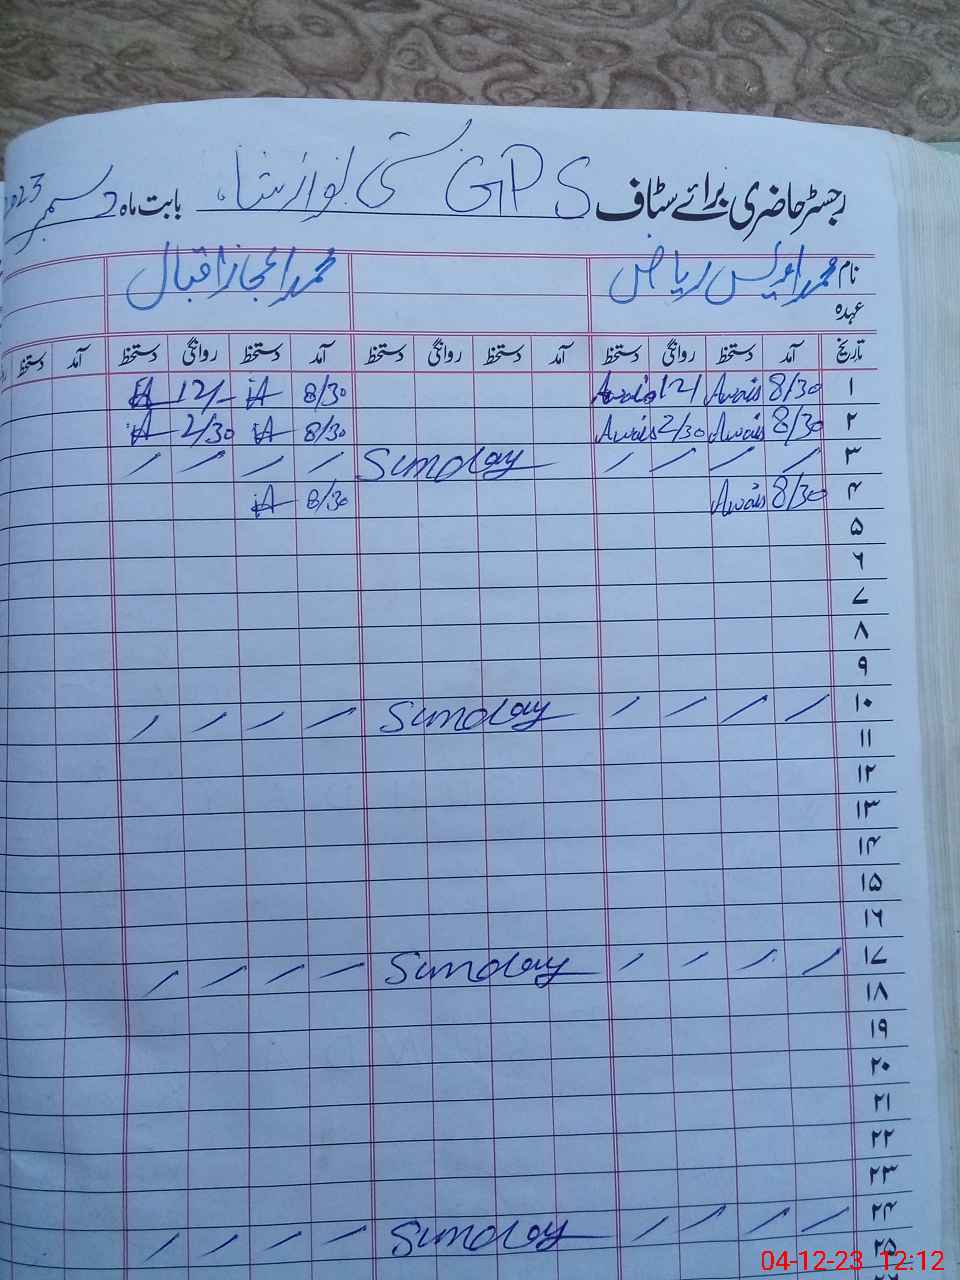 رجسٹر حاضری برائے سٹاف GPS بستی نواز شاہ بابت ماہ دسمبر 2023
نام محمد اویس ریاض محمد اعجاز اقبال
عہدہ
تاریخ آمد دستخط روانگی دستخط آمد دستخط روانگی دستخط آمد دستخط روانگی دستخط آمد دستخط
۱ 8/30 Awais 12/ Awais 8/30 iA 12/-
۲ 8/30 Awais 2/30 Awais 8/30 iA 2/30 iA
۳ Sunday
۴ 8/30 Awais 8/30 iA
۵
۶
۷
۸
۹
۱۰ Sunday
۱۱
۱۲
۱۳
۱۴
۱۵
۱۶
۱۷ Sunday
۱۸
۱۹
۲۰
۲۱
۲۲
۲۳
۲۴ Sunday
۲۵
04-12-23 12:12